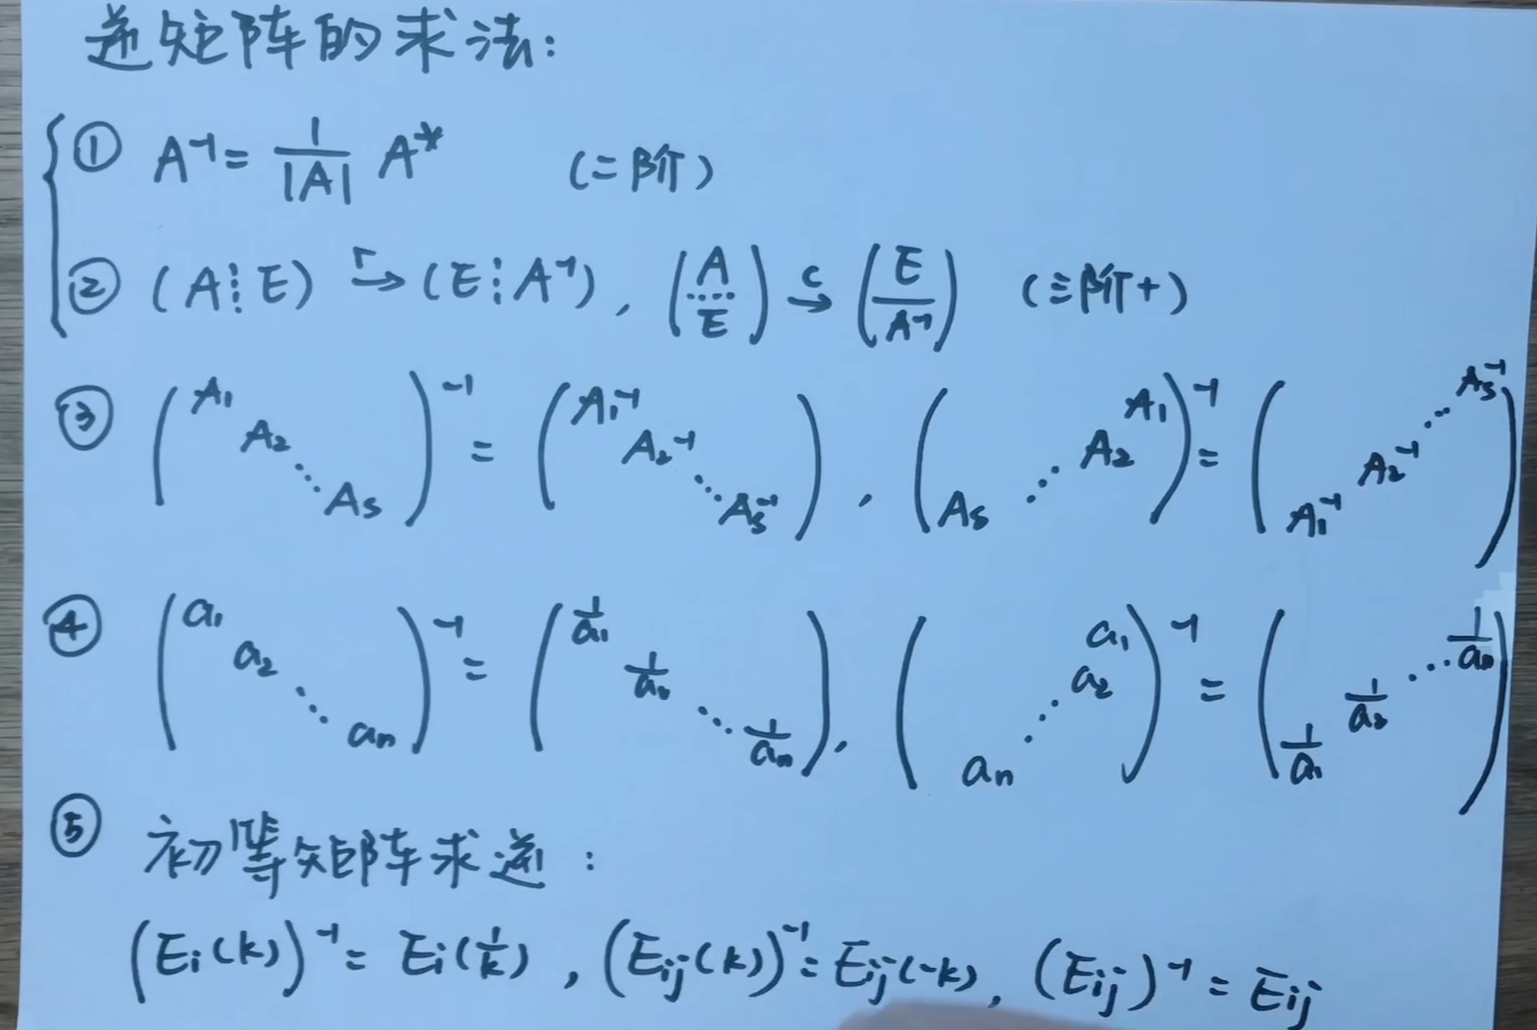 逆矩阵的求法:
① A⁻¹ = 1/|A| A* (二阶)
② (A⋮E) r→ (E⋮A⁻¹), (A/E) c→ (E/A⁻¹) (三阶+)
③ (A₁ A₂ ⋱ Aₛ)⁻¹ = (A₁⁻¹ A₂⁻¹ ⋱ Aₛ⁻¹), (A₁ A₂ ⋰ Aₛ)⁻¹ = (Aₛ⁻¹ ⋰ A₂⁻¹ A₁⁻¹)
④ (a₁ a₂ ⋱ aₙ)⁻¹ = (1/a₁ 1/a₂ ⋱ 1/aₙ), (a₁ a₂ ⋰ aₙ)⁻¹ = (1/aₙ ⋰ 1/a₂ 1/a₁)
⑤ 初等矩阵求逆:
(Eᵢ(k))⁻¹ = Eᵢ(1/k), (Eᵢⱼ(k))⁻¹ = Eᵢⱼ(-k), (Eᵢⱼ)⁻¹ = Eᵢⱼ